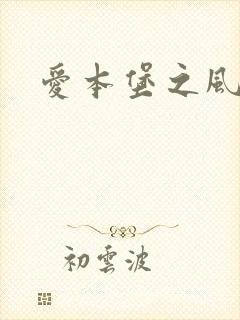 愛本堡之風
初雲波